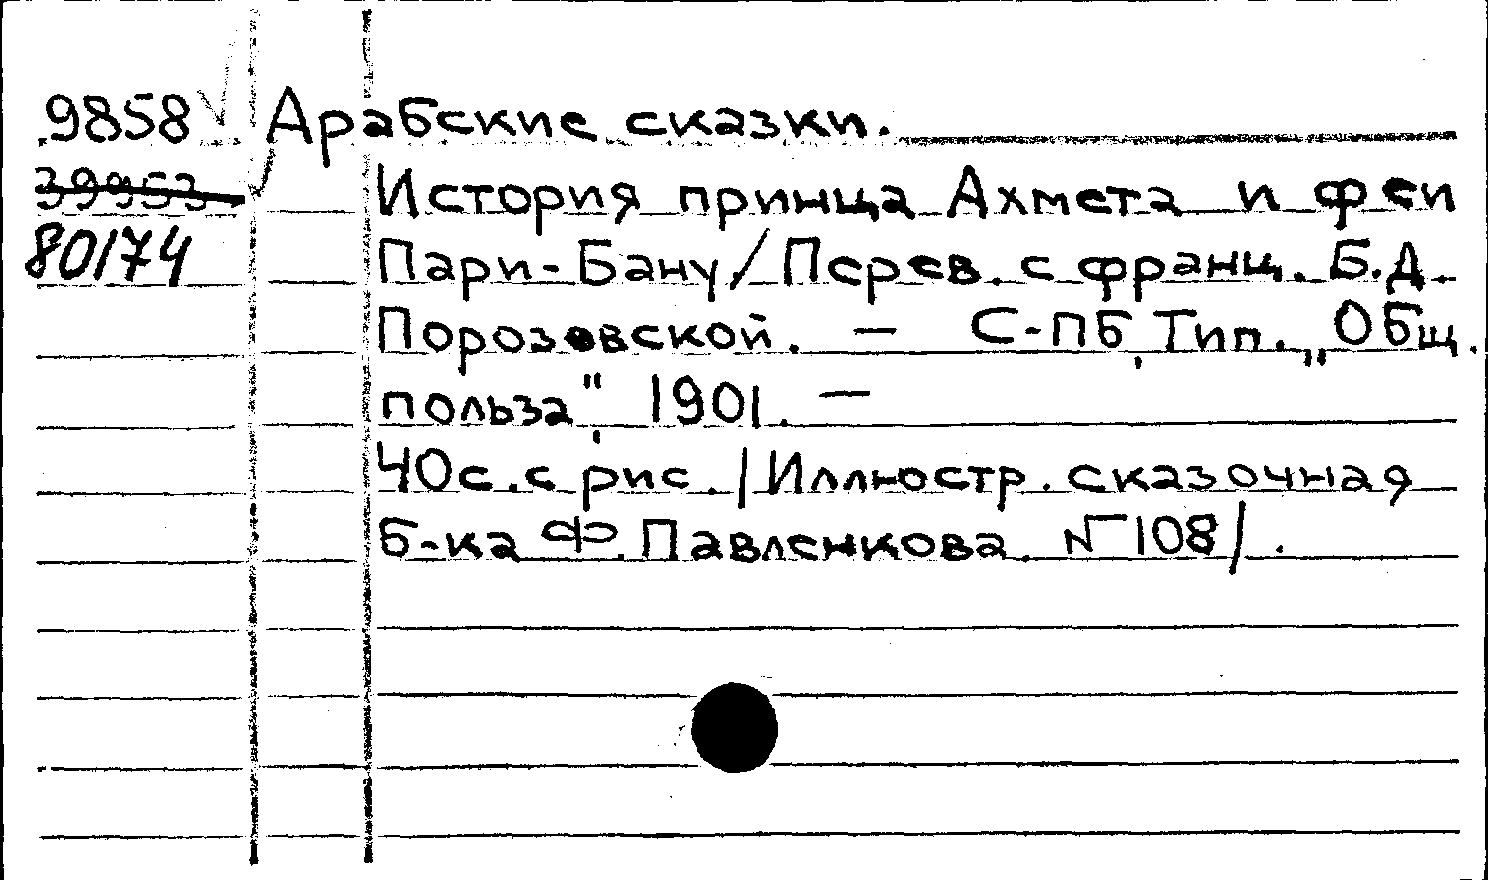 9858 Арабские сказки.
39953 История принца Ахмета и феи
80174 Пари-Бану /Перев. с франц. Б.Д.
Порозовской. — С-ПБ, Тип. „Общ.
польза", 1901. —
40с. с рис. /Иллюстр. сказочная
б-ка Ф. Павленкова. № 108/.